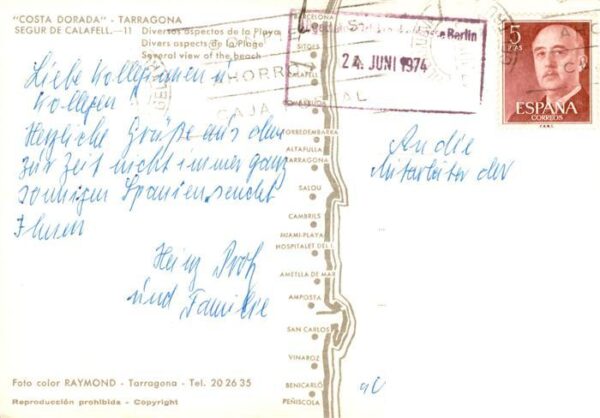 "COSTA DORADA" - TARRAGONA
SEGUR DE CALAFELL.—11
Diversos aspectos de la Playa
Divers aspects de la Plage
Several view of the beach
Liebe Kolleginnen u
Kollegen
Herzliche Grüße aus dem
zur Zeit nicht immer ganz
sonnigen Spanien sendet
Ihnen
Heinz
und Familie
BARCELONA
SITGES
CALAFELL
TORREDEMBARRA
ALTAFULLA
TARRAGONA
SALOU
CAMBRILS
MIAMI-PLAYA
HOSPITALET DEL I.
AMETLLA DE MAR
AMPOSTA
SAN CARLOS
VINAROZ
BENICARLÓ
PEÑISCOLA
Berlin
24. JUNI 1974
AHORRO
CAJA POSTAL
5
PTAS
ESPAÑA
CORREOS
An die
Mitarbeiter der
Foto color RAYMOND - Tarragona - Tel. 20 26 35
Reproducción prohibida - Copyright